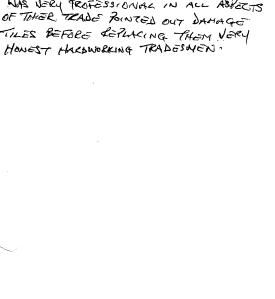 WAS VERY PROFESSIONAL IN ALL ASPECTS
OF THIER TRADE POINTED OUT DAMAGE
TILES BEFORE REPLACING THEM VERY
HONEST HARDWORKING TRADESMEN.